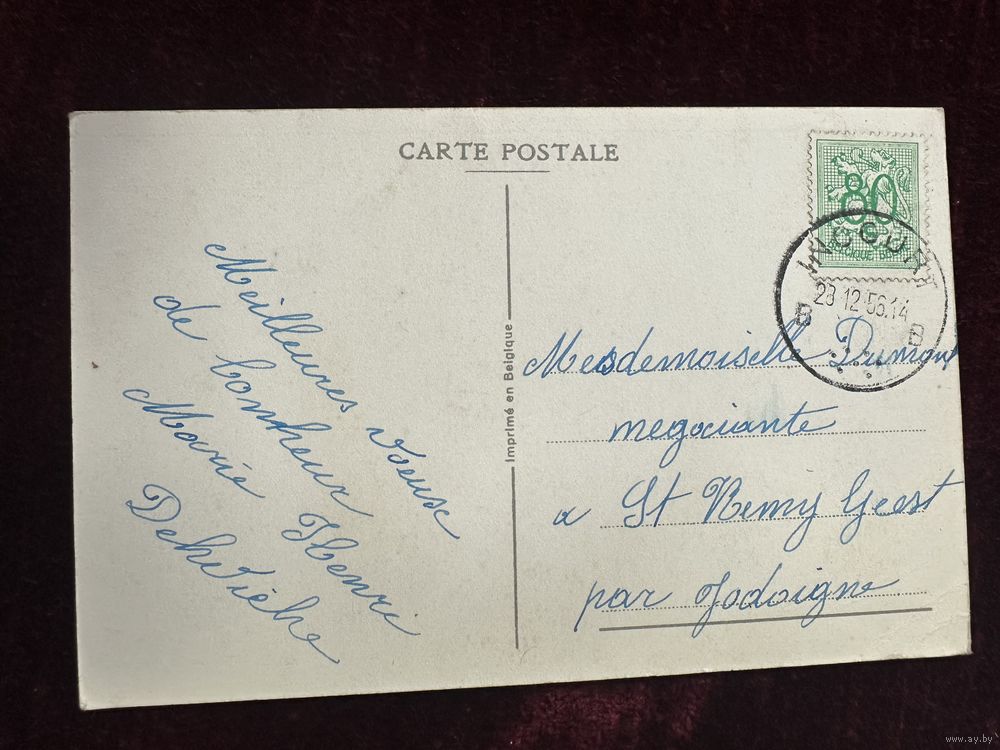 CARTE POSTALE
80
BELGIQUE
INCOUR
B 28-12-56.14 B
Meilleures voeuse
de bonheur
Marie Henri
Imprimé en Belgique
Mesdemoiselle Dumont
negociante
a St Remy Geest
par Jodoigne
www.ay.by